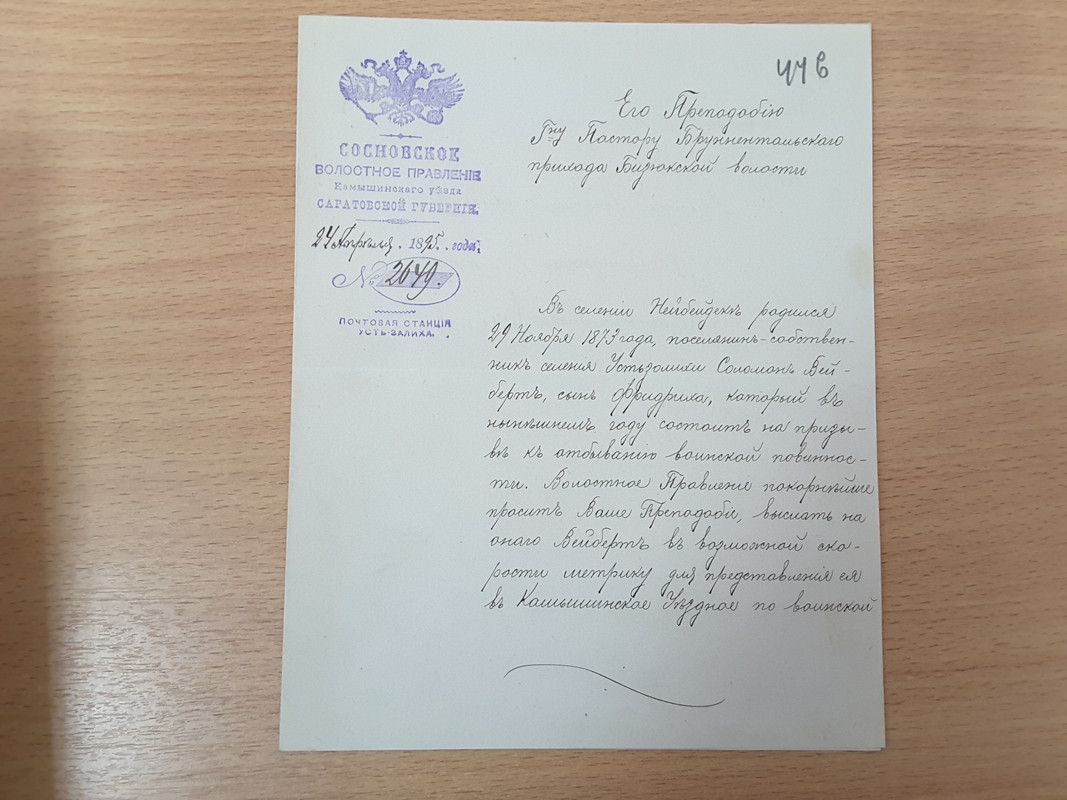 44 в
СОСНОВСКОЕ
ВОЛОСТНОЕ ПРАВЛЕНІЕ
Камышинскаго уѣзда
САРАТОВСКОЙ ГУБЕРНІИ.
24 Апрѣля . 1895 . года.
№ 2649.
ПОЧТОВАЯ СТАНЦІЯ
УСТЬ-ЗАЛИХА.
Его Преподобію
Гну Пастору Брунентальскаго
прихода Бизюкской волости
Въ селеніи Нейбейдекъ родился
29 Ноября 1873 года, поселянинъ-собствен-
никъ селенія Устьзолихи Соломонъ Вей-
бертъ, сынъ Фридриха, который въ
нынѣшнемъ году состоитъ на призы-
вѣ къ отбыванію воинской повиннос-
ти. Волостное Правленіе покорнѣйше
проситъ Ваше Преподобіе, выслать на
онаго Вейбертъ въ возможной ско-
рости метрику для представленія ея
въ Камышинское Уѣздное по воинской